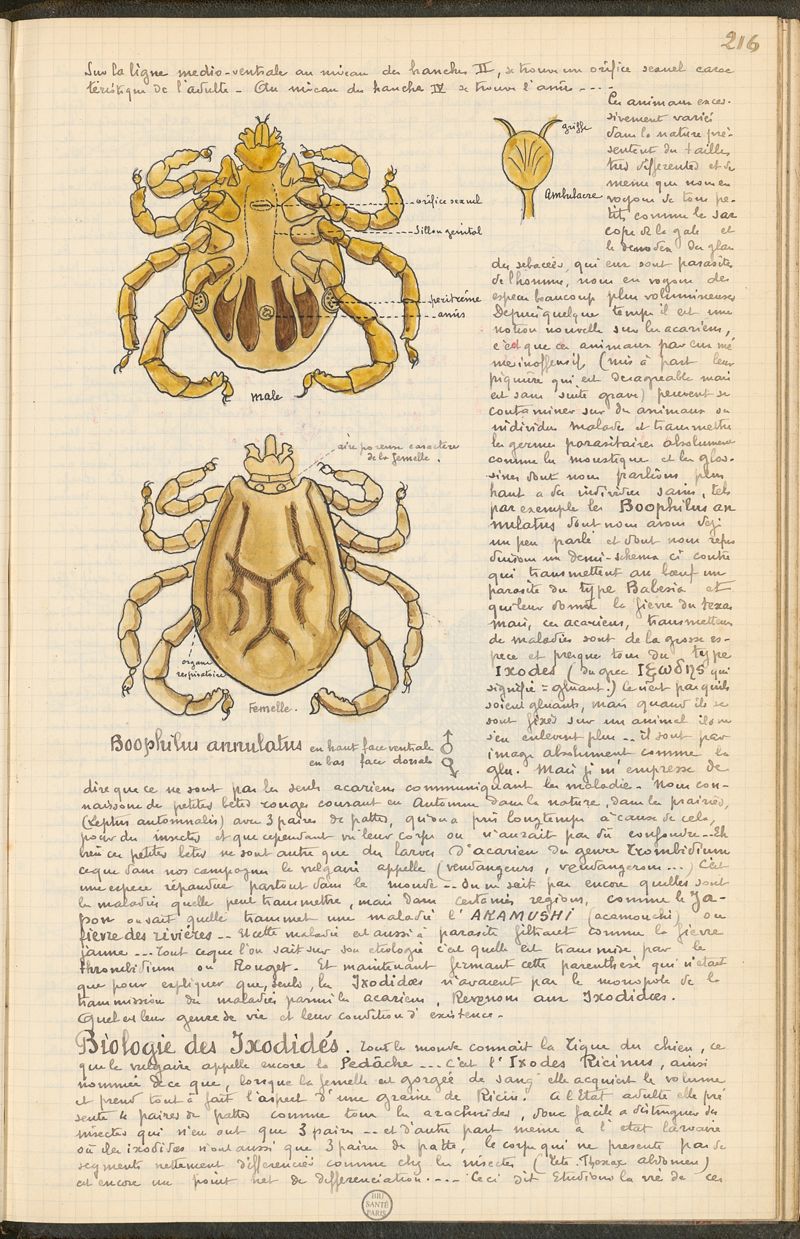 216
Sur la ligne medio-ventrale au niveau des hanches II, se trouve un orifice sexuel carac
téristique de l'adulte - Au niveau des hanches IV se trouve l'anus - - - -
orifice sexuel
Sillon genital
peritrème
anus
male
griffe
Ambulacre
aire poreuse caractère
de la femelle.
organe
respiratoire
Femelle.
Boophilus annulatus en haut face ventrale ♂
en bas face dorsale ♀
Ces animaux exces-
sivement variés
dans la nature pré-
sentent des tailles
très différentes et de
meme que nous en
voyons de tous pe-
tits, comme le sar
copte de la gale et
le demodex des glan
des sebacées, qui eux sont parasites
de l'homme, nous en voyons des
especes beaucoup plus volumineuses
Depuis quelque temps il est une
notion nouvelle sur les acariens,
c'est que ces animaux par eux mê
mes inoffensifs, (mis à part leur
piqûre qui est desagreable mais
est sans suite grave) peuvent se
contaminer sur des animaux ou
individus malades et transmettre
les germes parasitaires absolument
comme les moustiques et les glos-
sines dont nous parlions plus
haut a des individus sains, tels
par exemple les Boophilus an
nulatus dont nous avons déjà
un peu parlé et dont nous repro
duisons un demi-schema ci contre
qui transmettent au bœuf un
parasite du type Babesia et
qui leur donne la fievre du texas
mais, ces acariens, transmetteurs
de maladies sont de la grosse es-
pece et presque tous du type
Ixodes (du grec Ιξωδης qui
signifie = gluant.) ce n'est pas qu'ils
soient gluants, mais quand ils se
sont fixés sur un animal ils ne
s'en enlevent plus -- ils sont par
image absolument comme la
glu. Mais je m'empresse de
dire que ce ne sont pas les seuls acariens communiquant les maladies - Nous con-
naissons de petites betes rouges courant en Automne dans la nature, dans les prairies,
(Leptus automnalis) avec 3 paires de pattes, qu'on a pris longtemps à cause de cela,
pour des insectes et que cependant vu leur corps on n'aurait pas dû confondre -- Eh
bien ces petites betes ne sont autre que des larves d'acarien du genre Trombidium
ce que dans nos campagnes le vulgaire appelle (vendangeurs, vendangerons ...) C'est
une espece répandue partout dans le monde -- On ne sait pas encore quelles sont
les maladies quelle peut transmettre, mais dans certaines regions, comme le Ja-
pon on sait quelle transmet une maladie l'AKAMUSHI (acamouchi) ou
fievre des rivières -- Et cette maladie est aussi à parasite filtrant comme la fievre
jaune --- Tout ce que l'on sait sur son etiologie c'est quelle est transmise par le
thrombidium ou Rouget. Et maintenant fermant cette parenthèse qui n'était
que pour expliquer que, seuls, les Ixodidæs n'avaient pas le monopole de la
transmission des maladies parmi les acariens, Revenons aux Ixodidæs.
Quel est leur genre de vie et leur condition d'existence -
Biologie des Ixodidés. Tout le monde connait la Tique du chien, ce
que le vulgaire appelle encore la Pedâche --- C'est l'Ixodes Ricinus, ainsi
nommée de ce que, lorsque la femelle est gorgée de sang elle acquiert le volume
et prend tout à fait l'aspect d'une graine de Ricin. A l'Etat adulte elle pré
sente 4 paires de pattes comme tous les arachnides, donc facile a distinguer des
insectes qui n'en ont que 3 paires -- et d'autre part meme à l'etat larvaire
où les ixodidæs n'ont aussi que 3 paires de pattes, le corps qui ne presente pas de
segments nettement differenciés comme chez les insectes (Tete. Thorax abdomen)
est encore un point net de differenciation. --- Ceci dit Etudions la vie de ces
BIU
SANTÉ
PARIS